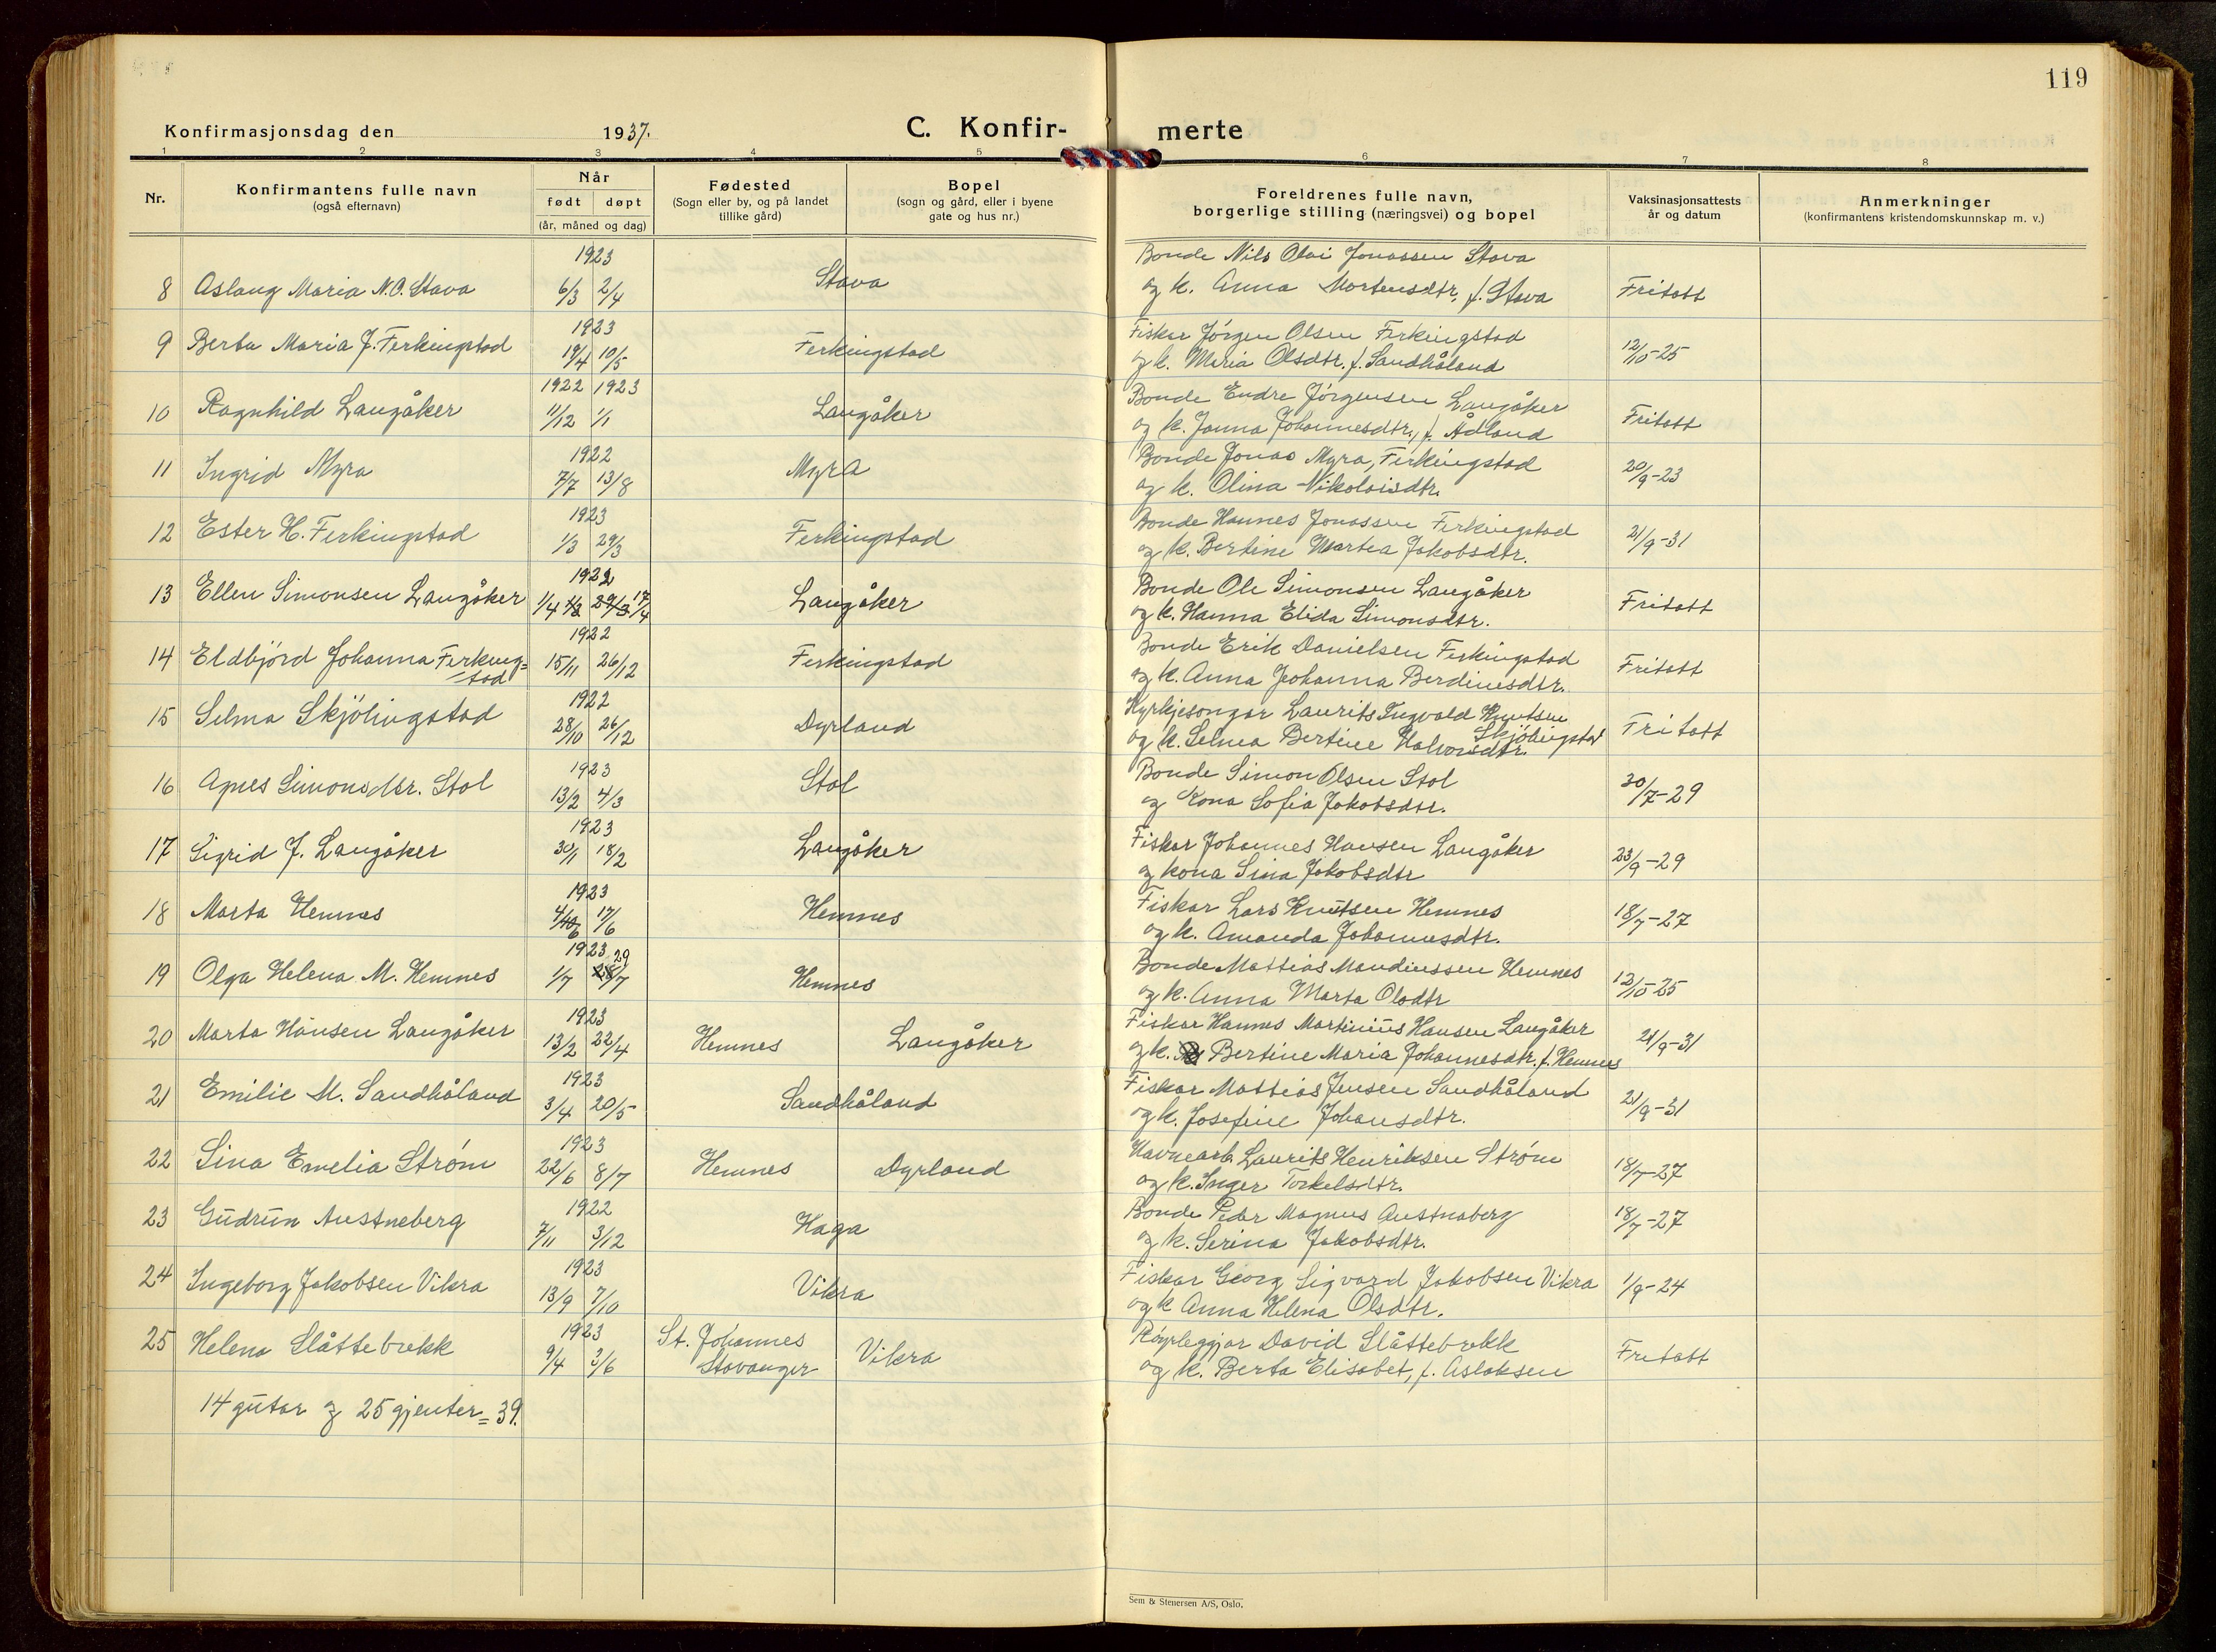 119
Konfirmasjonsdag den 1937.
C. Konfir- merte
1 2 3 4 5 6 7 8
Nr.
Konfirmantens fulle navn
(også efternavn)
Når
født døpt
(år, måned og dag)
Fødested
(Sogn eller by, og på landet
tillike gård)
Bopel
(sogn og gård, eller i byene
gate og hus nr.)
Foreldrenes fulle navn,
borgerlige stilling (næringsvei) og bopel
Vaksinasjonsattests
år og datum
Anmerkninger
(konfirmantens kristendomskunnskap m. v.)
1923 Bonde Nils Olai Jonassen Stava
8 Aslaug Maria N.O. Stava 6/3 2/4 Stava og k. Anna Mortensdtr, f. Stava Fritatt
1923 Fiskar Jörgen Olsen Ferkingstad
9 Berta Maria J. Ferkingstad 19/4 10/5 Ferkingstad og k. Maria Olsdtr. f. Sandhåland 12/10-25
1922 1923 Bonde Endre Jörgensen Langåker
10 Ragnhild Langåker 11/12 1/1 Langåker og k. Janna Johannesdtr., f. Ådland Fritatt
1922 Bonde Jonas Myra, Ferkingstad
11 Ingrid Myra 7/7 13/8 Myra og k. Olina Nikolaisdtr. 20/9-23
1923 Bonde Hannes Jonassen Ferkingstad
12 Ester H. Ferkingstad 1/3 29/3 Ferkingstad og k. Bertine Martea Jakobsdtr. 21/9-31
1922 Bonde Ole Simonsen Langåker
13 Ellen Simonsen Langåker 1/4 1/3 29/3 17/4 Langåker og k. Hanna Elida Simonsdtr. Fritatt
1922 Bonde Erik Danielsen Ferkingstad
14 Eldbjörd Johanna Ferking=
stad 15/11 26/12 Ferkingstad og k. Anna Johanna Berdinesdtr. Fritatt
1922 Kyrkjesongar Laurits Ingvald Knutsen
Skjölingstad
15 Selma Skjölingstad 28/10 26/12 Dyrland og k. Selma Bertine Halvorsdtr. Fritatt
1923 Bonde Simon Olsen Stol
16 Agnes Simonsdtr. Stol 13/2 4/3 Stol og Kona Sofia Jakobsdtr. 30/7-29
1923 Fiskar Johannes Hansen Langåker
17 Sigrid J. Langåker 30/1 18/2 Langåker og kona Sina Jakobsdtr 23/9-29
1923 Fiskar Lars Knutsen Hemnes
18 Marta Hemnes 4/6 17/6 Hemnes og k. Amanda Johannesdtr. 18/7-27
1923 29 Bonde Mattias Mandiussen Hemnes
19 Olga Helena M. Hemnes 1/7 28/7 Hemnes og k. Anna Marta Olsdtr 12/10-25
1923 Fiskar Hannes Martinius Hansen Langåker
20 Marta Hansen Langåker 13/2 22/4 Hemnes Langåker og k. Bertine Maria Johannesdtr. f. Hemnes 21/9-31
1923 Fiskar Mattias Jensen Sandhåland
21 Emilie M. Sandhåland 3/4 20/5 Sandhåland og k. Josefine Johansdtr. 21/9-31
1923 Havnearb. Laurits Henriksen Ström
22 Sina Emelia Ström 22/6 8/7 Hemnes Dyrland og k. Inger Torkelsdtr. 18/7-27
1922 Bonde Peder Magnus Austnaberg
23 Gudrun Austneberg 7/11 3/12 Haga og k. Serina Jakobsdtr. 18/7-27
1923 Fiskar Georg Sigvard Jakobsen Vikra
24 Ingeborg Jakobsen Vikra 13/9 7/10 Vikra og k Anna Helena Olsdtr. 1/9-24
1923 St. Johannes Röyrleggjar David Slåttebrekk
25 Helena Slåttebrekk 9/4 3/6 Stavanger Vikra og k. Berta Elisabet, f. Aslaksen Fritatt
14 gutar og 25 gjenter = 39.
Sem & Stenersen A/S, Oslo.